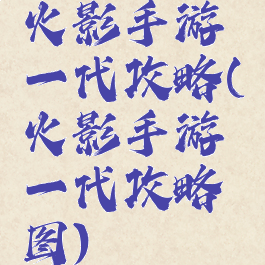 火影手游
一代攻略(
火影手游
一代攻略
图)